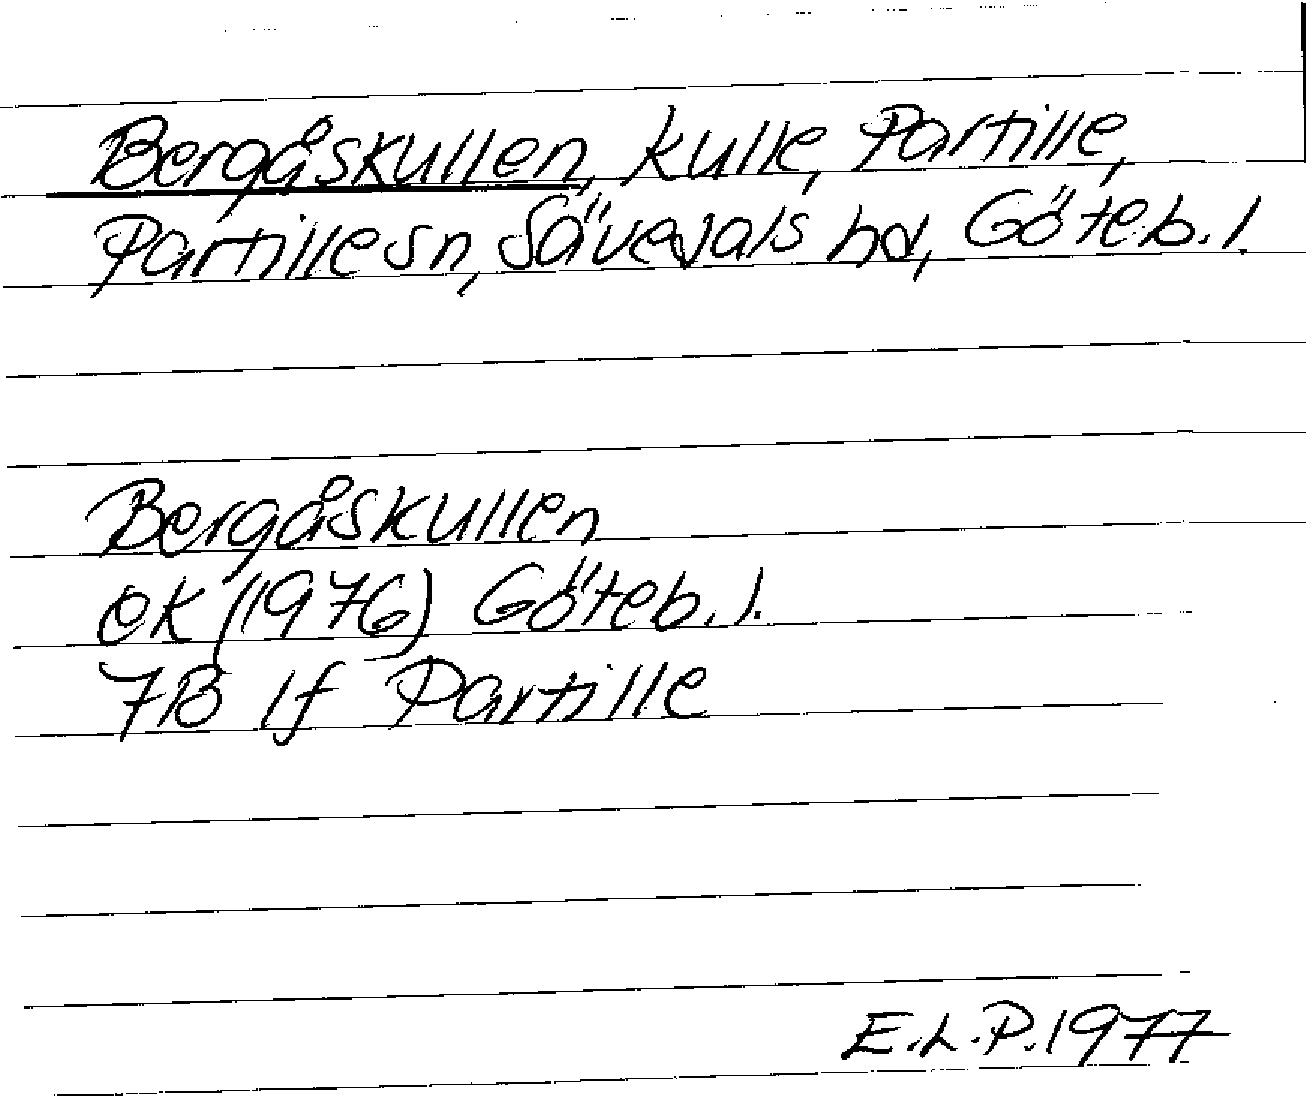 Bergåskullen, kulle, Partille,
Partille sn, Sävedals hd, Göteb. l.
Bergåskullen
ek (1976) Göteb. l.
7B 1f Partille
E.L.P. 1977